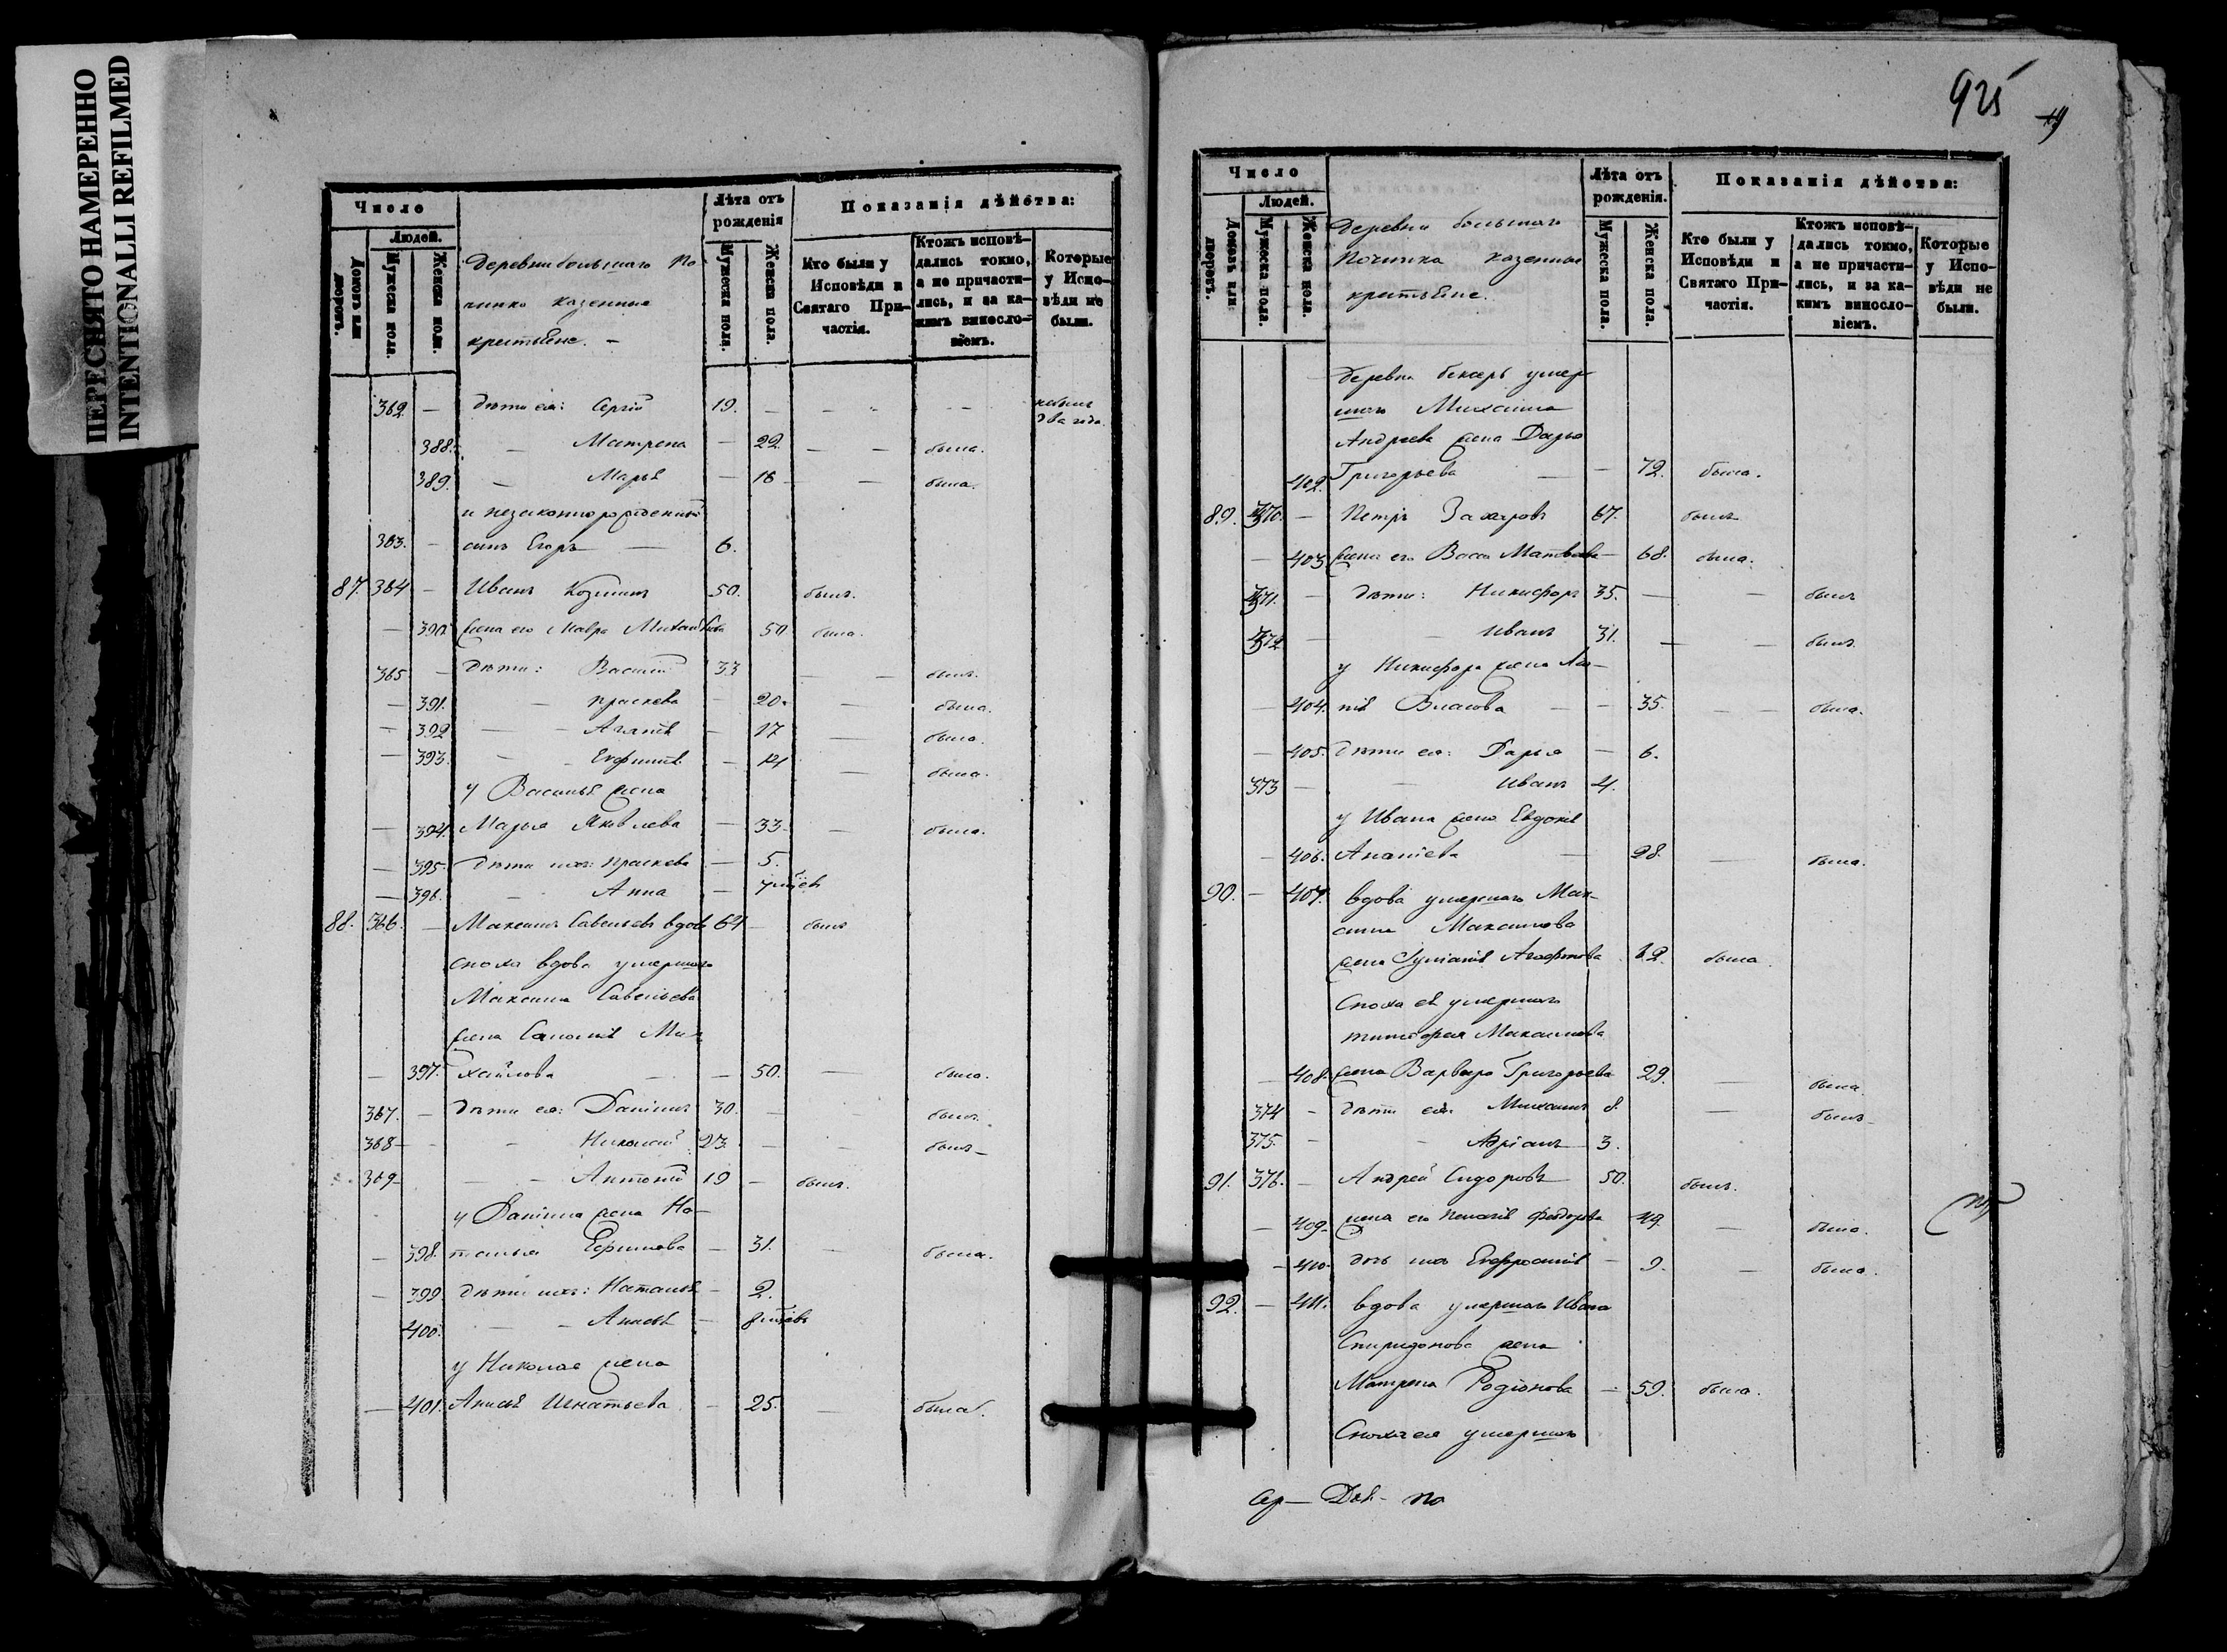 ПЕРЕСНЯТО НАМЕРЕННО
INTENTIONALLI REFILMED
Число
Людей.
Домовъ или дворовъ.
Мужеска пола.
Женска пола.
Деревни большаго По
чинка казенные
крестьяне. –
Лѣта отъ рожденія
Мужеска пола.
Женска пола.
Показанія дѣйства:
Кто были у Исповѣди и Святаго Причастія.
Ктожъ исповѣдались токмо, а не причастились, и за какимъ винословіемъ.
Которые у Исповѣди не были.
362 – дѣти ея: Сергій 19. – – – два года.
388. – Матрена – 22 – – была.
389. – Марья – 18 – – была.
и незаконнорожденный
363. – сынъ Егоръ – 6.
87. 364 – Иванъ Козминъ 50. былъ.
– 390. жена его Мавра Михайлова 50 была.
365 – дѣти: Василій 33 – – былъ.
– 391. – Праскева – 20. – была.
– 392 – – Агапія – 17 – была.
– 393. – – Евфимія – 14 – была.
у Василья жена
– 394. Марья Яковлева – 33. – была.
– 395. дѣти ихъ: Праскева – 5.
– 396. – Анна – 7 мѣсяцевъ
88. 366. – Максимъ Савельевъ вдовъ 64 – былъ
сноха вдова умершаго
Максима Савельева
жена Соломія Ми-
– 397. хайлова – – 50. – была.
367. – дѣти ея: Даніилъ 30. – былъ.
368 – – Николай 23. – – былъ –
369 – – – Антоній 19 – былъ.
у Даніила жена На-
– 398. талья Ефимова – 31. – была.
– 399. дѣти ихъ: Наталья – 2.
400. – – Анисья – 8 мѣсяцевъ
у Николая жена
– 401. Анисья Игнатьева – 25. – была.
925
19
Число
Людей.
Домовъ или дворовъ.
Мужеска пола.
Женска пола.
Деревни большаго
Починка казенные
крестьяне.
Лѣта отъ рожденія.
Мужеска пола.
Женска пола.
Показанія дѣйства:
Кто были у Исповѣди и Святаго Причастія.
Ктожъ исповѣдались токмо, а не причастились, и за какимъ винословіемъ.
Которые у Исповѣди не были.
деревни умер
шаго Михаила
Андреева жена Дарья
402. Григорьева – – 72. была.
89. 370. – Петръ Захаровъ 67. былъ
– 403 жена его Васса Матвѣева – 68. была.
371. – дѣти: Никифоръ 35. – – былъ
372 – – Иванъ 31. – – былъ.
у Никифора жена
– 404. Власова – – 35. – – была.
– 405. дѣти ея: Дарья – 6.
373 – – Иванъ 4.
у Ивана жена Евдокія
– 406. Ананіева – 28. – была.
90. – 407. вдова умершаго Мак-
сима Максимова
жена Агафонова 62. была.
Сноха ея умершаго
Тимофея Максимова
– 408. жена Варвара Григорьева 29. – была
374 – дѣти ея: Михаилъ 8. – былъ
375. – – Адріанъ 3.
91. 376. – Андрей Сидоровъ 50. былъ.
– 409. жена его Пелагія Феодорова 49. – была.
– 410. дочь ихъ Евфросинія – 9. – была.
92. – 411. вдова умершаго Ивана
Спиридонова жена
Матрена Родіонова – 59. была.
Сноха ея умершаго